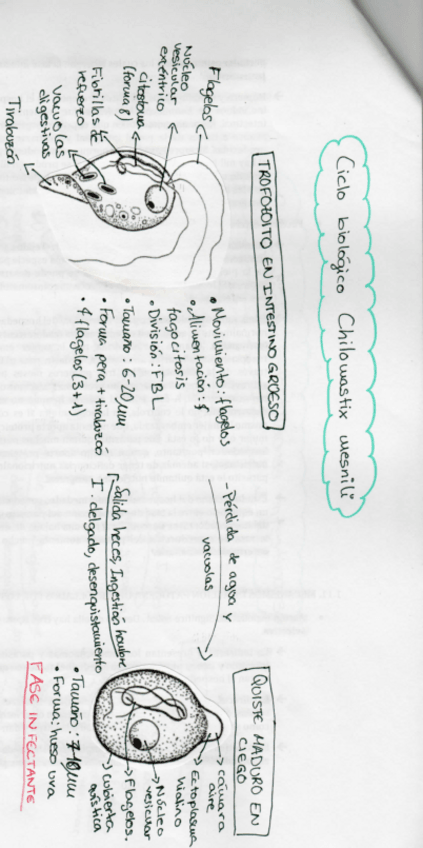 Ciclo biológico Chilomastix mesnili
TROFOZOITO EN INTESTINO GROESO
Flagelos
Núcleo
vesicular
excéntrico
citostoma
(forma 8)
Fibrillas de
refuerzo
Vacuolas
digestivas
Tirabuzón
• Movimiento: flagelos
• Alimentación: f
fagocitosis
• División: FBL
• Tamaño: 6-20 µm
• Forma pera + tirabuzón
• 4 flagelos (3+1)
- Pérdida de agua y
vacuolas
Salida heces, Ingestión hombre
I. delgado, desenquistamiento
QUISTE MADURO EN
CIEGO
cámara
aire
Ectoplasma
hialino
Núcleo
vesicular
Flagelos.
Cubierta
quística
• Tamaño: 7-10 µm
• Forma: hueso uva
FASE INFECTANTE